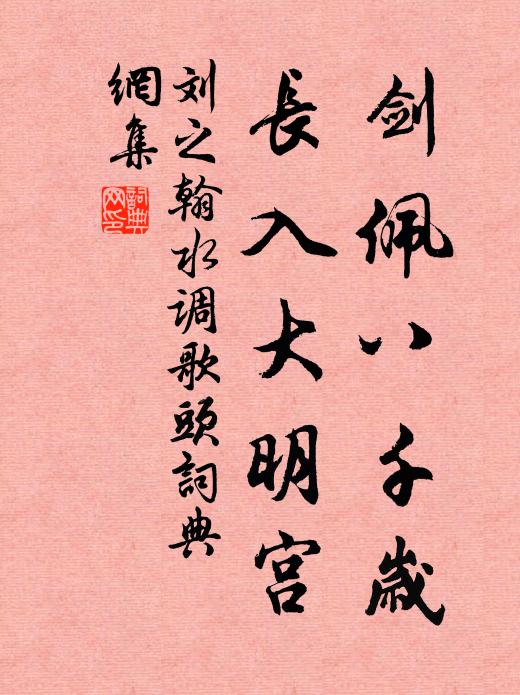 剑佩八千歲
長入大明宫
刘之翰水调歌頭詞典
網集
詞典
网印